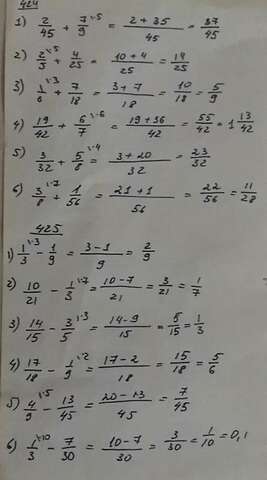 424
1) 2/45 + 7/9 ·5 = (2+35)/45 = 37/45
2) 2/5 ·5 + 4/25 = (10+4)/25 = 14/25
3) 1/6 ·3 + 7/18 = (3+7)/18 = 10/18 = 5/9
4) 19/42 + 6/7 ·6 = (19+36)/42 = 55/42 = 1 13/42
5) 3/32 + 5/8 ·4 = (3+20)/32 = 23/32
6) 3/8 ·7 + 1/56 = (21+1)/56 = 22/56 = 11/28
425
1) 1/3 ·3 - 1/9 = (3-1)/9 = 2/9
2) 10/21 - 1/3 ·7 = (10-7)/21 = 3/21 = 1/7
3) 14/15 - 3/5 ·3 = (14-9)/15 = 5/15 = 1/3
4) 17/18 - 1/9 ·2 = (17-2)/18 = 15/18 = 5/6
5) 4/9 ·5 - 13/45 = (20-13)/45 = 7/45
6) 1/3 ·10 - 7/30 = (10-7)/30 = 3/30 = 1/10 = 0,1